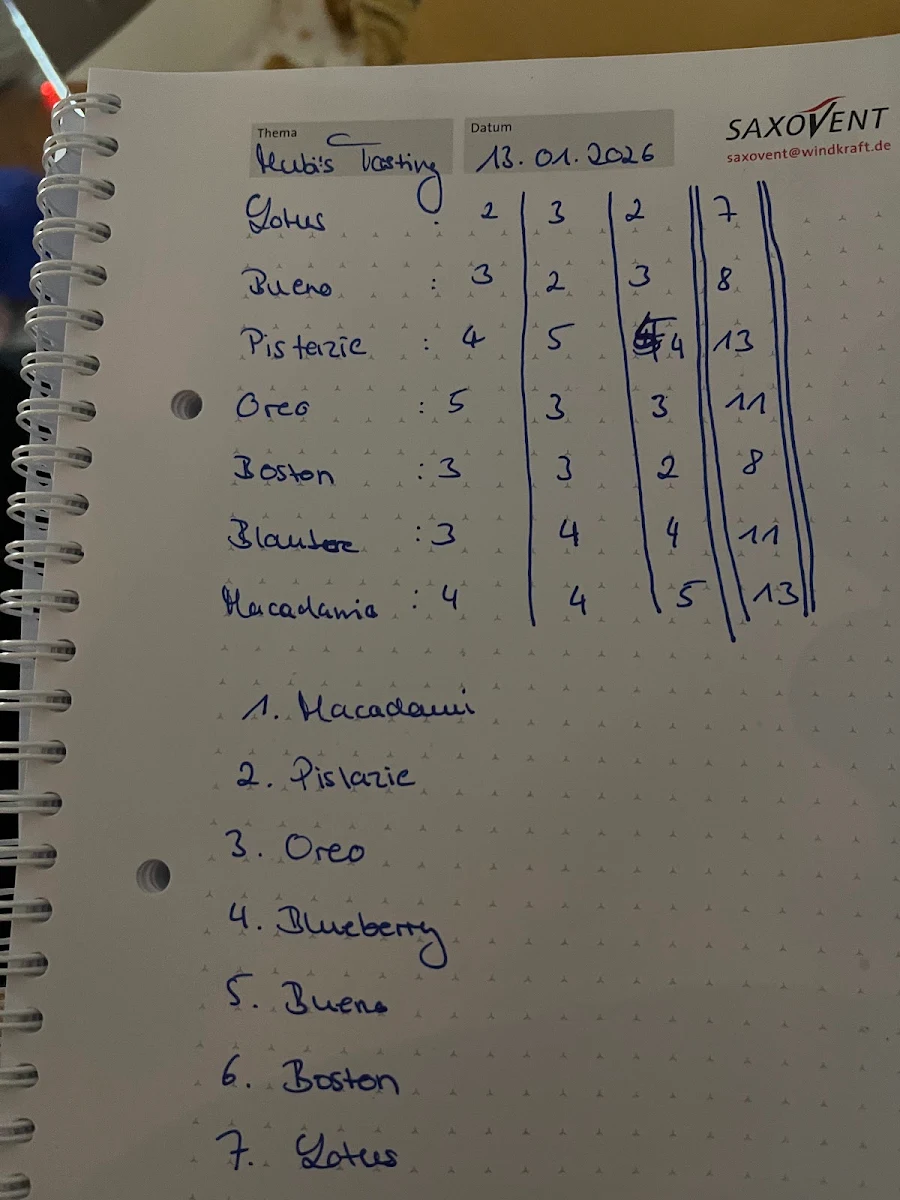 Thema
Datum
SAXOVENT
saxovent@windkraft.de
Tasting 13.01.2026
Lotus : 2 | 3 | 2 || 7 ||
Bueno : 3 | 2 | 3 || 8 ||
Pistazie : 4 | 5 | 4 || 13 ||
Oreo : 5 | 3 | 3 || 11 ||
Boston : 3 | 3 | 2 || 8 ||
: 3 | 4 | 4 || 11 ||
Macadamia : 4 | 4 | 5 || 13 ||
1. Macadami
2. Pistazie
3. Oreo
4. Blueberry
5. Bueno
6. Boston
7. Lotus